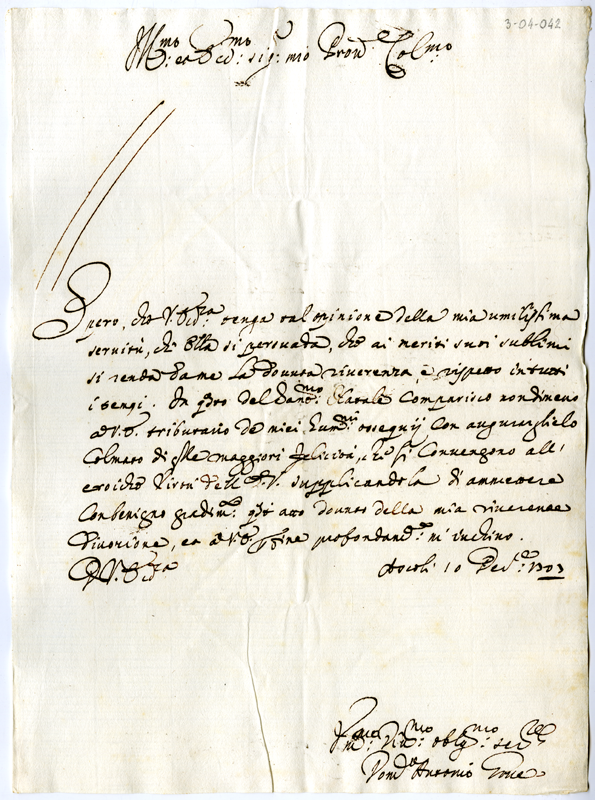 3-04-042
Ill:mo et Ecc:mo Sig:r mio Pron:e Col:mo
Spero, che V. Ecc:za tenga tal opinione della mia umilissima
servitù, ch'Ella si persuada, che ai meriti suoi sublimi
si renda da me la dovuta riverenza, e rispetto in tutti
i tempi. In q:sto del San:mo Natale comparisco nondimeno
a V. E. tributario de miei hum:mi ossequij con augurarglielo
colmato di q:lle maggiori felicità, che si convengono all'
eroiche virtù dell'E. V. supplicandola di ammettere
con benigno gradim:to q:sto atto dovuto della mia riverente
divozione, et a V. E. per fine profondam:te m'inchino.
D. V. Ecc:za Ascoli 10 Dec:e 1703
Um:mo Div:mo oblig:mo ser:re
Antonio